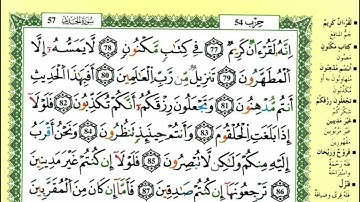 حِزْب 54
سُورَةُ الحَدِيد 57
إِنَّهُۥ لَقُرْءَانٌ كَرِيمٌ 77 فِي كِتَٰبٍ مَّكْنُونٍ 78 لَّا يَمَسُّهُۥٓ إِلَّا
ٱلْمُطَهَّرُونَ 79 تَنزِيلٌ مِّن رَّبِّ ٱلْعَٰلَمِينَ 80 أَفَبِهَٰذَا ٱلْحَدِيثِ
أَنتُم مُّدْهِنُونَ 81 وَتَجْعَلُونَ رِزْقَكُمْ أَنَّكُمْ تُكَذِّبُونَ 82 فَلَوْلَآ
إِذَا بَلَغَتِ ٱلْحُلْقُومَ 83 وَأَنتُمْ حِينَئِذٍ تَنظُرُونَ 84 وَنَحْنُ أَقْرَبُ
إِلَيْهِ مِنكُمْ وَلَٰكِن لَّا تُبْصِرُونَ 85 فَلَوْلَآ إِن كُنتُمْ غَيْرَ مَدِينِينَ
86 تَرْجِعُونَهَآ إِن كُنتُمْ صَٰدِقِينَ 87 فَأَمَّآ إِن كَانَ مِنَ ٱلْمُقَرَّبِينَ
لَقُرْءَانٌ كَرِيمٌ
كِتَابٍ مَكْنُونٍ
أَنْتُمْ مُدْهِنُونَ
تَجْعَلُونَ رِزْقَكُمْ
غَيْرَ مَدِينِينَ